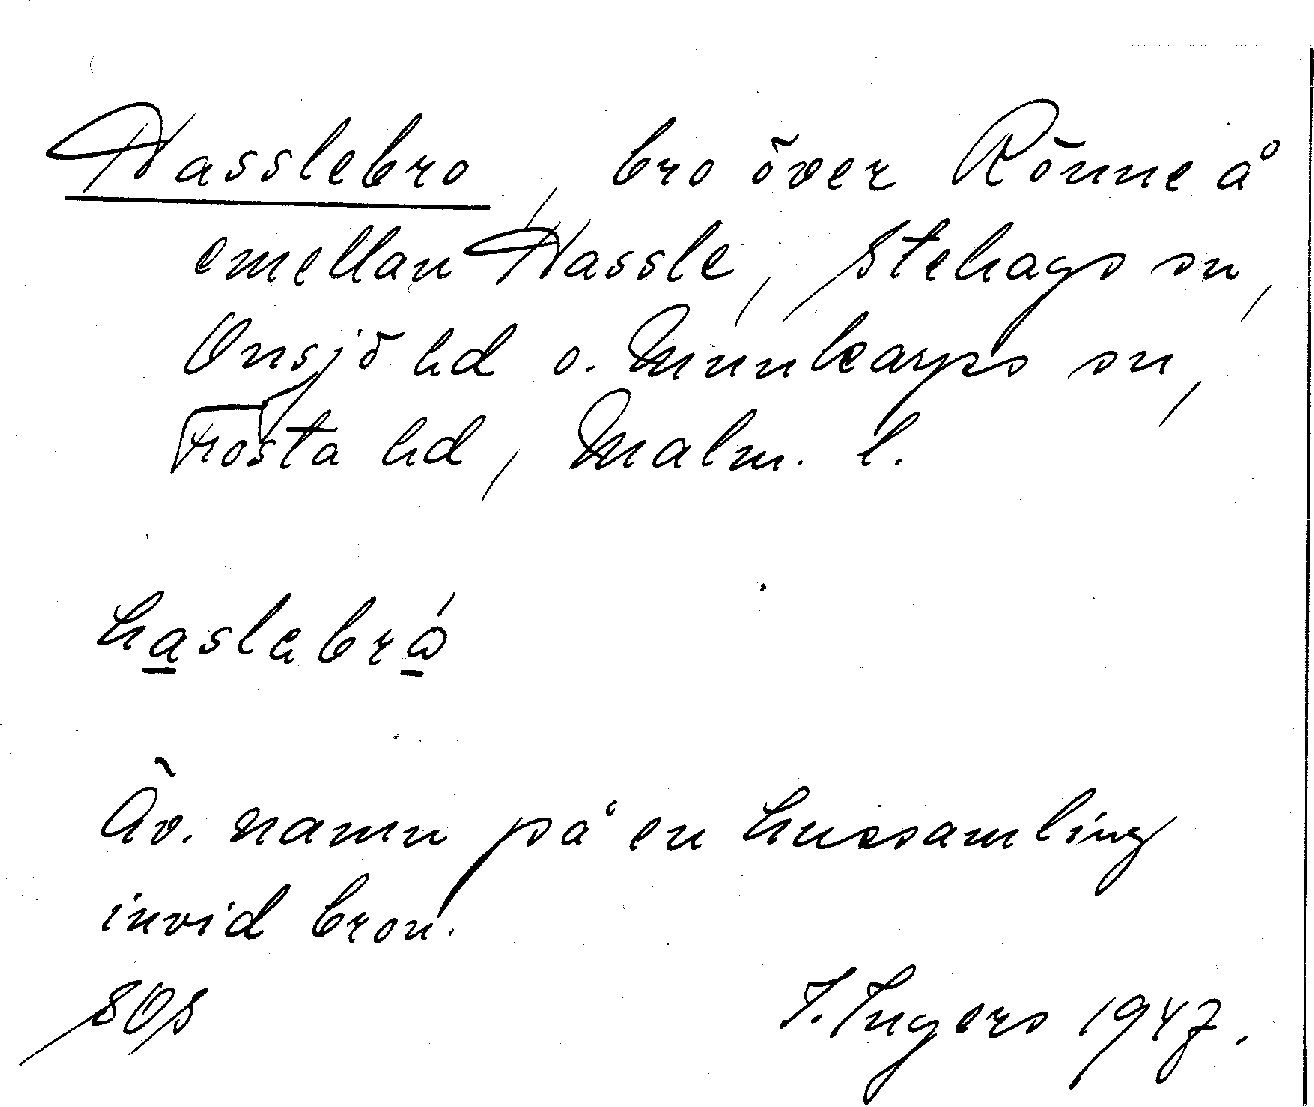 Hasslebro, bro över Rönne å
emellan Hassle, Stehags sn,
Onsjö hd o. Munkarps sn,
Frosta hd, Malm. l.
haslabró
Äv. namn på en hussamling
invid bron.
SOS
I. Ingers 1947.